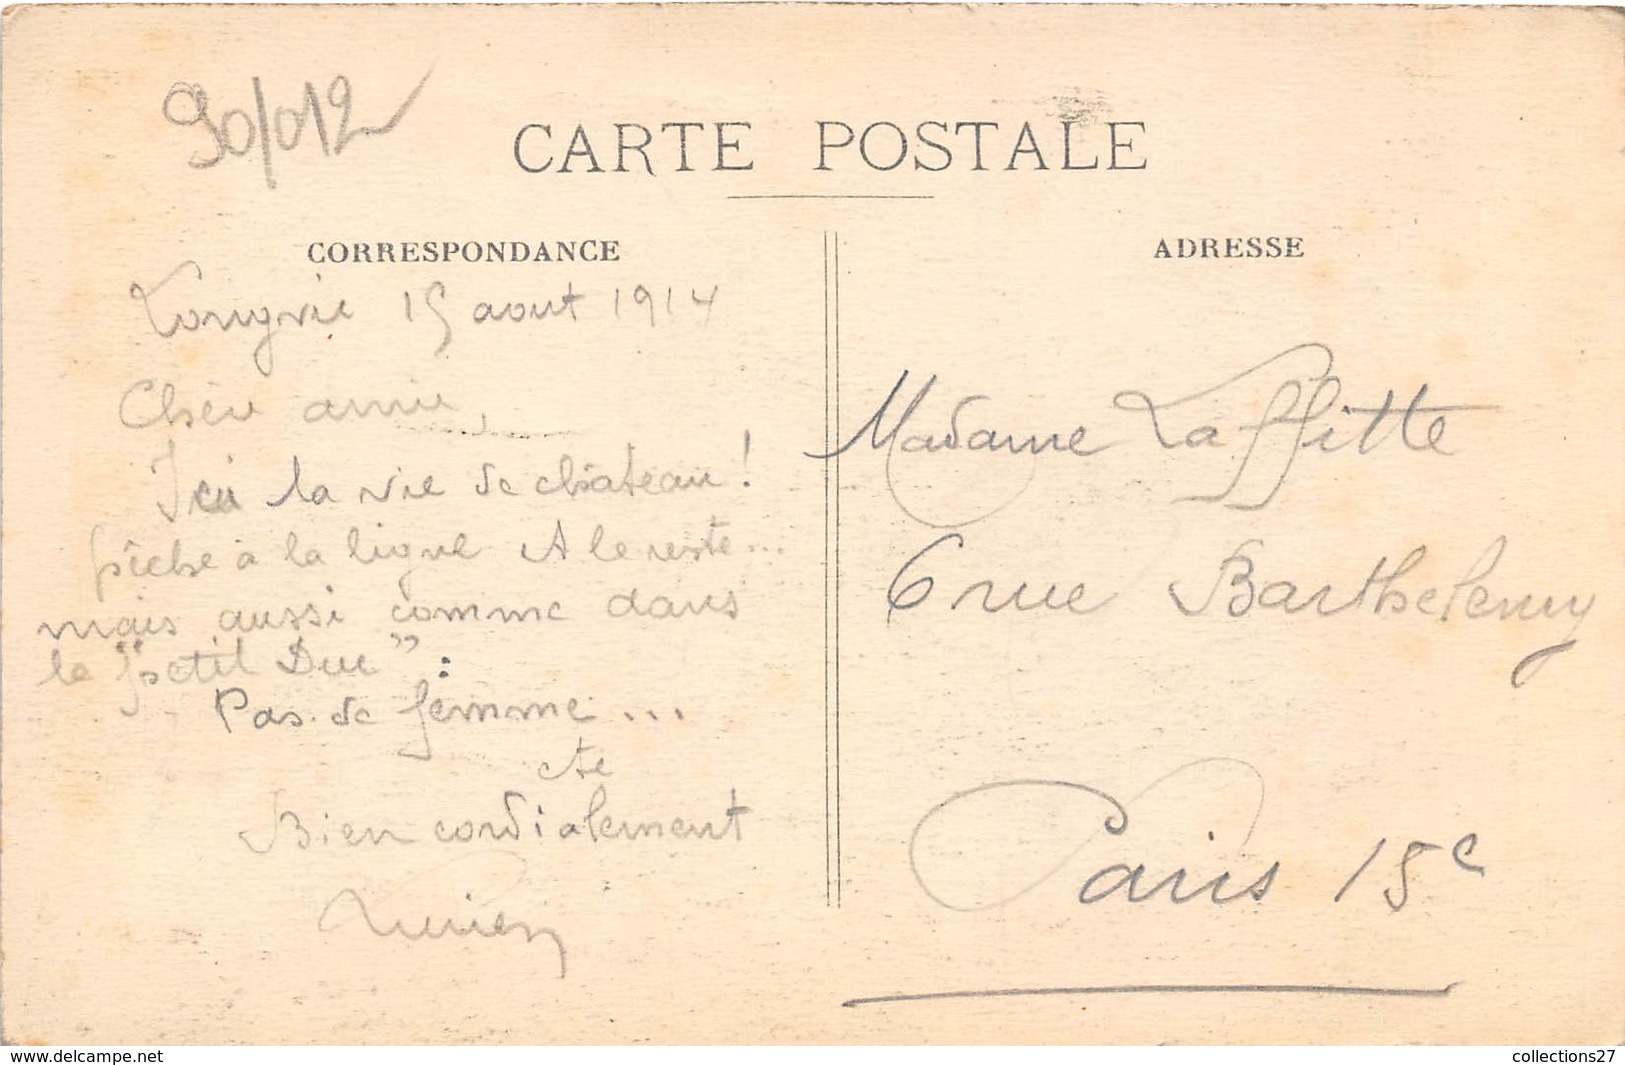 90/012
CARTE POSTALE
CORRESPONDANCE
Longvic 15 aout 1914
Chère amie,
Ici la vie de château!
pêche à la ligne et le reste...
mais aussi comme dans
le "petit Duc":
Pas de femme...
Bien cordialement
Lucien
ADRESSE
Madame Laffitte
6 rue Barthelemy
Paris 15e
delcampe.net
collections27